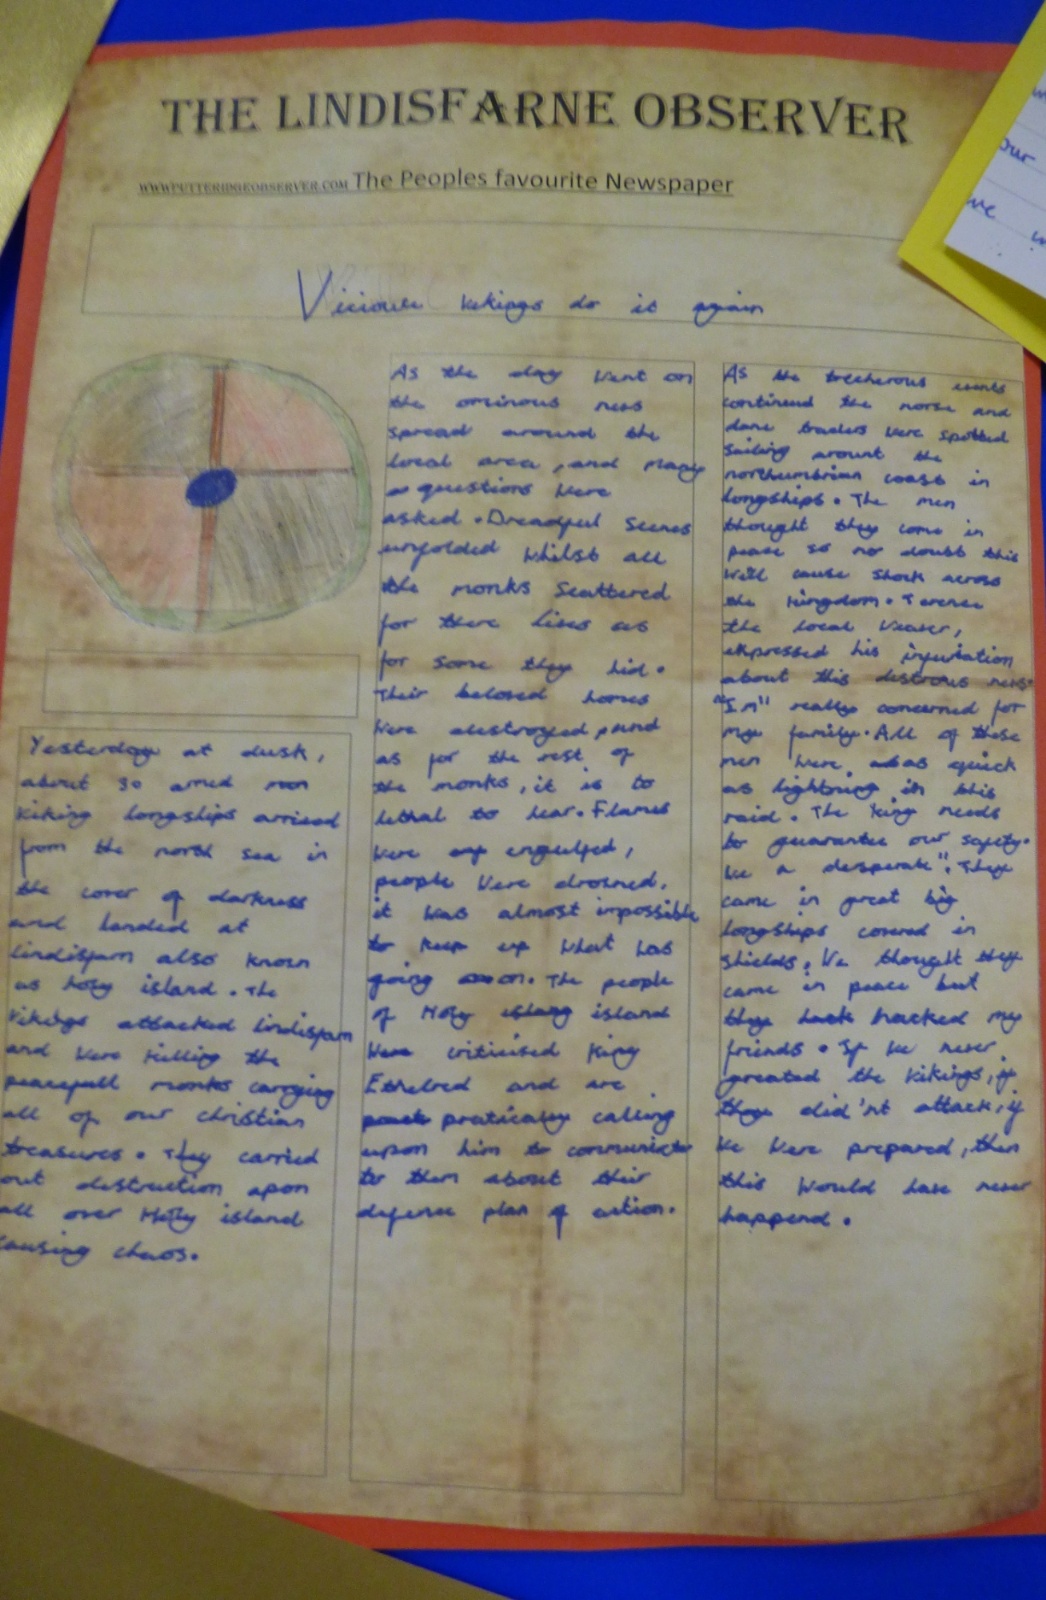 THE LINDISFARNE OBSERVER
WWW.PUTTERIDGEOBSERVER.COM The Peoples favourite Newspaper
Vicious vikings do it again
Yesterday at dusk,
about 30 armed
viking longships arrived
from the north sea in
the cover of darkness
and landed at
lindisfarn also known
as holy island. The
vikings attacked lindisfarn
and were killing the
peacefull monks carrying
all of our christian
treasures. They carried
out destruction apon
all over Holy island
causing chaos.
As the day went on
the ominous news
spread around the
local area, and many
questions were
asked. Dreadful scenes
unfolded whilst all
the monks scattered
for there lives as
for some they hid.
Their beloved homes
were destroyed, and
as for the rest of
the monks, it is to
lethal to hear. Flames
were engulfed,
people were drowned.
it was almost impossible
to keep up what was
going on. The people
of Holy island
were criticised King
Ethelred and are
pratically calling
upon him to communicate
to them about their
defense plan of action.
As the trecherous events
continued the norse and
dane traders were spotted
sailing around the
northumbrian coast in
longships. The men
thought they come in
peace so no doubt this
will cause shock across
the kingdom. Terence
the local weaver,
expressed his
about this news.
"I'm" really concerned for
my family. All of these
men were as quick
as lightning in this
raid. The King needs
to guarantee our safety.
we a desperate". They
came in great big
longships covered in
shields. We thought they
came in peace but
they hacked my
friends. If we never
greated the vikings, if
they did'nt attack, if
we were prepared, then
this would have never
happend.
our
we